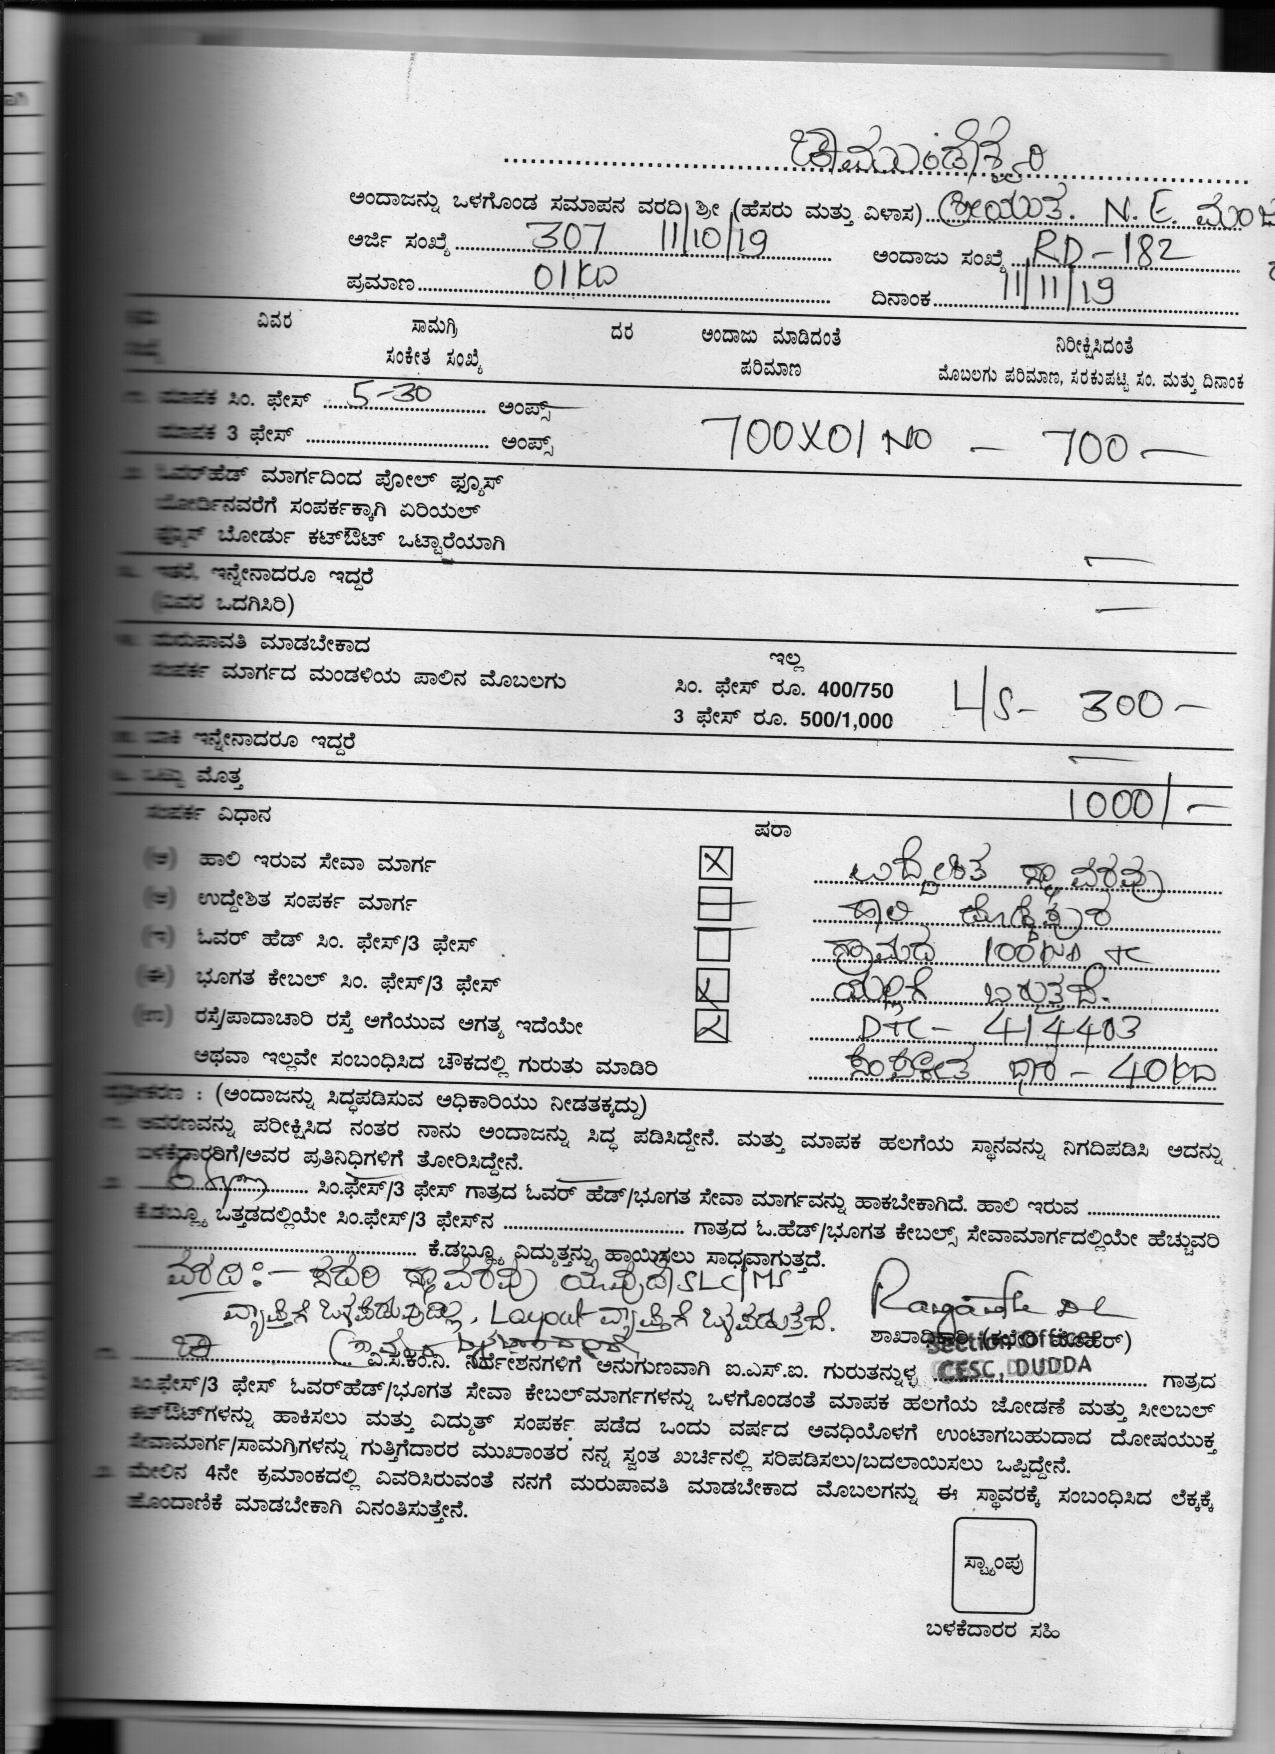 ಚಾಮುಂಡೇಶ್ವರಿ
ಅಂದಾಜನ್ನು ಒಳಗೊಂಡ ಸಮಾಪನ ವರದಿ ಶ್ರೀ (ಹೆಸರು ಮತ್ತು ವಿಳಾಸ) ಶ್ರೀಯುತ. N. E. ಮಂಜ
ಅರ್ಜಿ ಸಂಖ್ಯೆ 307 11/10/19 ಅಂದಾಜು ಸಂಖ್ಯೆ RD-182
ಪ್ರಮಾಣ 01KD ದಿನಾಂಕ 11/11/19
ವಿವರ ಸಾಮಗ್ರಿ ದರ ಅಂದಾಜು ಮಾಡಿದಂತೆ ನಿರೀಕ್ಷಿಸಿದಂತೆ
ಸಂಕೇತ ಸಂಖ್ಯೆ ಪರಿಮಾಣ ಮೊಬಲಗು ಪರಿಮಾಣ, ಸರಕುಪಟ್ಟಿ ಸಂ. ಮತ್ತು ದಿನಾಂಕ
೧. ಮಾಪಕ ಸಿಂ. ಫೇಸ್ 5-30 ಅಂಪ್ಸ್
ಮಾಪಕ 3 ಫೇಸ್ ಅಂಪ್ಸ್ 700X01 NO - 700-
೨. ಓವರ್‌ಹೆಡ್ ಮಾರ್ಗದಿಂದ ಪೋಲ್ ಫ್ಯೂಸ್
ಬೋರ್ಡಿನವರೆಗೆ ಸಂಪರ್ಕಕ್ಕಾಗಿ ಏರಿಯಲ್
ಫ್ಯೂಸ್ ಬೋರ್ಡು ಕಟ್‌ಔಟ್ ಒಟ್ಟಾರೆಯಾಗಿ
೩. ಇತರೆ, ಇನ್ನೇನಾದರೂ ಇದ್ದರೆ
(ವಿವರ ಒದಗಿಸಿರಿ)
೪. ಮರುಪಾವತಿ ಮಾಡಬೇಕಾದ ಇಲ್ಲ
ಸಂಪರ್ಕ ಮಾರ್ಗದ ಮಂಡಳಿಯ ಪಾಲಿನ ಮೊಬಲಗು ಸಿಂ. ಫೇಸ್ ರೂ. 400/750 L/S- 300-
3 ಫೇಸ್ ರೂ. 500/1,000
೫. ಬಾಕಿ ಇನ್ನೇನಾದರೂ ಇದ್ದರೆ
೬. ಒಟ್ಟು ಮೊತ್ತ 1000/-
ಸಂಪರ್ಕ ವಿಧಾನ ಷರಾ
(ಅ) ಹಾಲಿ ಇರುವ ಸೇವಾ ಮಾರ್ಗ X ಉದ್ದೇಶಿತ ಸ್ಥಾವರವು
(ಆ) ಉದ್ದೇಶಿತ ಸಂಪರ್ಕ ಮಾರ್ಗ ಹಾಲಿ
(ಇ) ಓವರ್ ಹೆಡ್ ಸಿಂ. ಫೇಸ್/3 ಫೇಸ್ ಗ್ರಾಮದ
(ಈ) ಭೂಗತ ಕೇಬಲ್ ಸಿಂ. ಫೇಸ್/3 ಫೇಸ್ ಬರುತ್ತದೆ.
(ಉ) ರಸ್ತೆ/ಪಾದಾಚಾರಿ ರಸ್ತೆ ಅಗೆಯುವ ಅಗತ್ಯ ಇದೆಯೇ 414403
ಅಥವಾ ಇಲ್ಲವೇ ಸಂಬಂಧಿಸಿದ ಚೌಕದಲ್ಲಿ ಗುರುತು ಮಾಡಿರಿ ಸಂಪರ್ಕಿತ ಭಾರ - 40KD
ದೃಢೀಕರಣ : (ಅಂದಾಜನ್ನು ಸಿದ್ಧಪಡಿಸುವ ಅಧಿಕಾರಿಯು ನೀಡತಕ್ಕದ್ದು)
೧. ಆವರಣವನ್ನು ಪರೀಕ್ಷಿಸಿದ ನಂತರ ನಾನು ಅಂದಾಜನ್ನು ಸಿದ್ಧ ಪಡಿಸಿದ್ದೇನೆ. ಮತ್ತು ಮಾಪಕ ಹಲಗೆಯ ಸ್ಥಾನವನ್ನು ನಿಗದಿಪಡಿಸಿ ಅದನ್ನು
ಬಳಕೆದಾರರಿಗೆ/ಅವರ ಪ್ರತಿನಿಧಿಗಳಿಗೆ ತೋರಿಸಿದ್ದೇನೆ.
೨. ಸಿಂ.ಫೇಸ್/3 ಫೇಸ್ ಗಾತ್ರದ ಓವರ್ ಹೆಡ್/ಭೂಗತ ಸೇವಾ ಮಾರ್ಗವನ್ನು ಹಾಕಬೇಕಾಗಿದೆ. ಹಾಲಿ ಇರುವ
ಕೆ.ಡಬ್ಲ್ಯೂ ಒತ್ತಡದಲ್ಲಿಯೇ ಸಿಂ.ಫೇಸ್/3 ಫೇಸ್‌ನ ಗಾತ್ರದ ಓ.ಹೆಡ್/ಭೂಗತ ಕೇಬಲ್ಸ್ ಸೇವಾಮಾರ್ಗದಲ್ಲಿಯೇ ಹೆಚ್ಚುವರಿ
ಕೆ.ಡಬ್ಲ್ಯೂ ವಿದ್ಯುತ್ತನ್ನು ಹಾಯಿಸಲು ಸಾಧ್ಯವಾಗುತ್ತದೆ.
ವರದಿ:- ಸದರಿ ಸ್ಥಾವರವು ಯಾವುದೇ SLC/MS
ವ್ಯಾಪ್ತಿಗೆ ಒಳಪಡುವುದಿಲ್ಲ, Layout ವ್ಯಾಪ್ತಿಗೆ ಒಳಪಡುತ್ತದೆ.
ಶಾಖಾಧಿಕಾರಿ
Section Officer
CESC, DUDDA
೧. ಚಾ ವಿ.ಸ.ಕಂ.ನಿ. ನಿರ್ದೇಶನಗಳಿಗೆ ಅನುಗುಣವಾಗಿ ಐ.ಎಸ್.ಐ. ಗುರುತನ್ನುಳ್ಳ ಗಾತ್ರದ
ಸಿಂ.ಫೇಸ್/3 ಫೇಸ್ ಓವರ್‌ಹೆಡ್/ಭೂಗತ ಸೇವಾ ಕೇಬಲ್‌ಮಾರ್ಗಗಳನ್ನು ಒಳಗೊಂಡಂತೆ ಮಾಪಕ ಹಲಗೆಯ ಜೋಡಣೆ ಮತ್ತು ಸೀಲಬಲ್
ಕಟ್‌ಔಟ್‌ಗಳನ್ನು ಹಾಕಿಸಲು ಮತ್ತು ವಿದ್ಯುತ್ ಸಂಪರ್ಕ ಪಡೆದ ಒಂದು ವರ್ಷದ ಅವಧಿಯೊಳಗೆ ಉಂಟಾಗಬಹುದಾದ ದೋಷಯುಕ್ತ
ಸೇವಾಮಾರ್ಗ/ಸಾಮಗ್ರಿಗಳನ್ನು ಗುತ್ತಿಗೆದಾರರ ಮುಖಾಂತರ ನನ್ನ ಸ್ವಂತ ಖರ್ಚಿನಲ್ಲಿ ಸರಿಪಡಿಸಲು/ಬದಲಾಯಿಸಲು ಒಪ್ಪಿದ್ದೇನೆ.
೨. ಮೇಲಿನ 4ನೇ ಕ್ರಮಾಂಕದಲ್ಲಿ ವಿವರಿಸಿರುವಂತೆ ನನಗೆ ಮರುಪಾವತಿ ಮಾಡಬೇಕಾದ ಮೊಬಲಗನ್ನು ಈ ಸ್ಥಾವರಕ್ಕೆ ಸಂಬಂಧಿಸಿದ ಲೆಕ್ಕಕ್ಕೆ
ಹೊಂದಾಣಿಕೆ ಮಾಡಬೇಕಾಗಿ ವಿನಂತಿಸುತ್ತೇನೆ.
ಸ್ಟ್ಯಾಂಪು
ಬಳಕೆದಾರರ ಸಹಿ